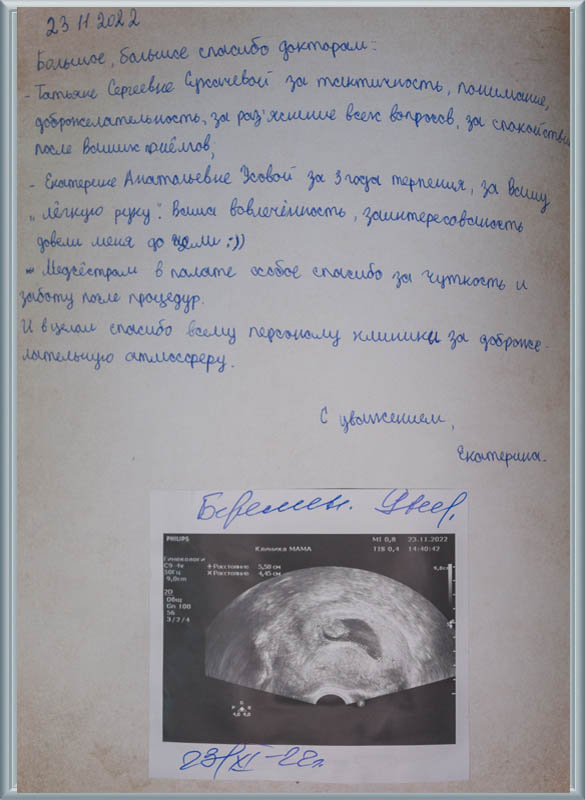 23 11 2022
Большое, большое спасибо докторам:
- Татьяне Сергеевне Сухачевой за тактичность, понимание,
доброжелательность, за раз'яснение всех вопросов, за спокойствие
после Ваших приёмов,
- Екатерине Анатольевне Усовой за 3 года терпения, за Вашу
„лёгкую руку". Ваша вовлечённость, заинтересованность
довели меня до цели :))
- Медсёстрам в палате особое спасибо за чуткость и
заботу после процедур.
И в целом спасибо всему персоналу клиники за доброже-
лательную атмосферу.
С уважением,
Екатерина.
Беремен.
PHILIPS
MI 0,8 23.11.2022
Клиника МАМА
TIB 0,4 14:40:42
Гинекологи
C9-4v
50Гц
9,0cm
+ Расстояние 5,58 см
× Расстояние 4,45 см
9,0см
2D
Общ
Gn 100
56
3/2/4
P R
4,0 4,0
23/XI-22г.